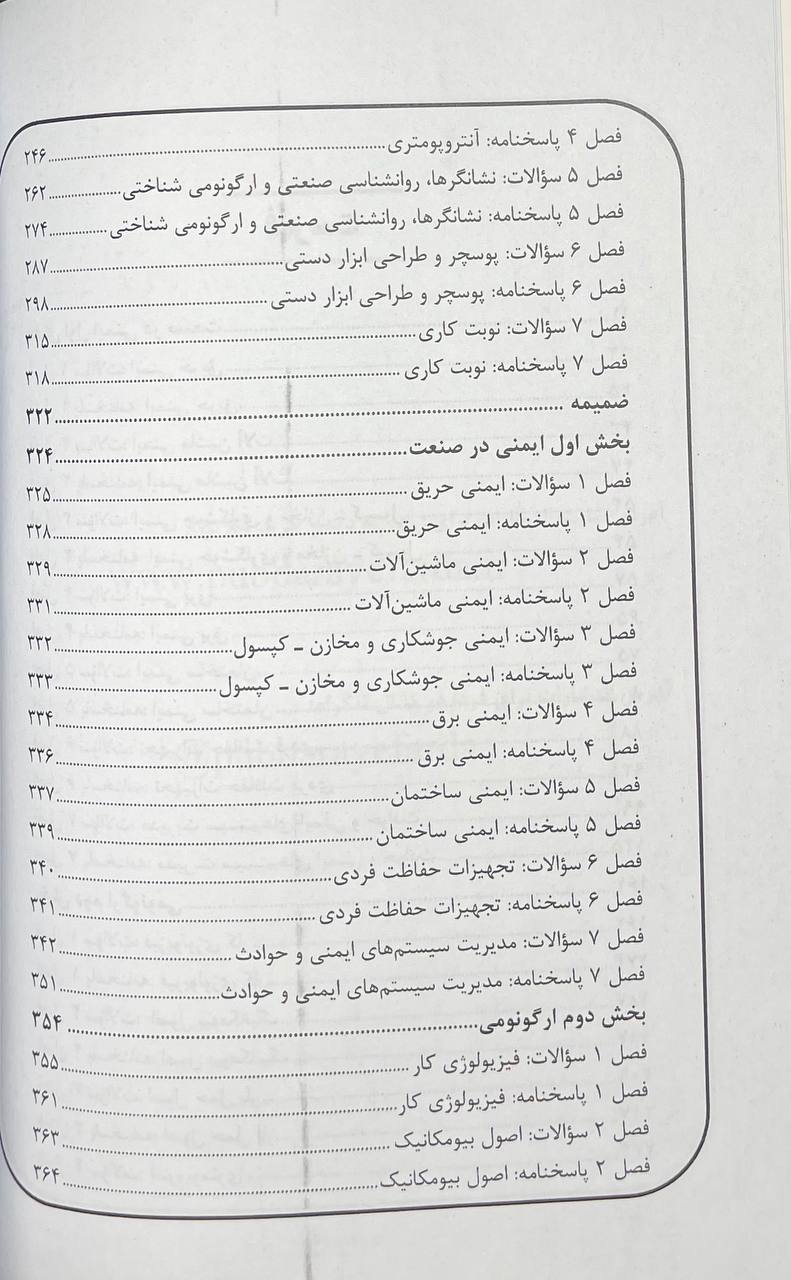 فصل ۴ پاسخنامه: آنتروپومتری ........ ۲۴۶
فصل ۵ سؤالات: نشانگرها، روانشناسی صنعتی و ارگونومی شناختی ........ ۲۶۲
فصل ۵ پاسخنامه: نشانگرها، روانشناسی صنعتی و ارگونومی شناختی ........ ۲۷۴
فصل ۶ سؤالات: پوسچر و طراحی ابزار دستی ........ ۲۸۷
فصل ۶ پاسخنامه: پوسچر و طراحی ابزار دستی ........ ۲۹۸
فصل ۷ سؤالات: نوبت کاری ........ ۳۱۵
فصل ۷ پاسخنامه: نوبت کاری ........ ۳۱۸
ضمیمه ........ ۳۲۲
بخش اول ایمنی در صنعت ........ ۳۲۴
فصل ۱ سؤالات: ایمنی حریق ........ ۳۲۵
فصل ۱ پاسخنامه: ایمنی حریق ........ ۳۲۸
فصل ۲ سؤالات: ایمنی ماشین‌آلات ........ ۳۲۹
فصل ۲ پاسخنامه: ایمنی ماشین‌آلات ........ ۳۳۱
فصل ۳ سؤالات: ایمنی جوشکاری و مخازن ـ کپسول ........ ۳۳۲
فصل ۳ پاسخنامه: ایمنی جوشکاری و مخازن ـ کپسول ........ ۳۳۳
فصل ۴ سؤالات: ایمنی برق ........ ۳۳۴
فصل ۴ پاسخنامه: ایمنی برق ........ ۳۳۶
فصل ۵ سؤالات: ایمنی ساختمان ........ ۳۳۷
فصل ۵ پاسخنامه: ایمنی ساختمان ........ ۳۳۹
فصل ۶ سؤالات: تجهیزات حفاظت فردی ........ ۳۴۰
فصل ۶ پاسخنامه: تجهیزات حفاظت فردی ........ ۳۴۱
فصل ۷ سؤالات: مدیریت سیستم‌های ایمنی و حوادث ........ ۳۴۲
فصل ۷ پاسخنامه: مدیریت سیستم‌های ایمنی و حوادث ........ ۳۵۱
بخش دوم ارگونومی ........ ۳۵۴
فصل ۱ سؤالات: فیزیولوژی کار ........ ۳۵۵
فصل ۱ پاسخنامه: فیزیولوژی کار ........ ۳۶۱
فصل ۲ سؤالات: اصول بیومکانیک ........ ۳۶۳
فصل ۲ پاسخنامه: اصول بیومکانیک ........ ۳۶۴